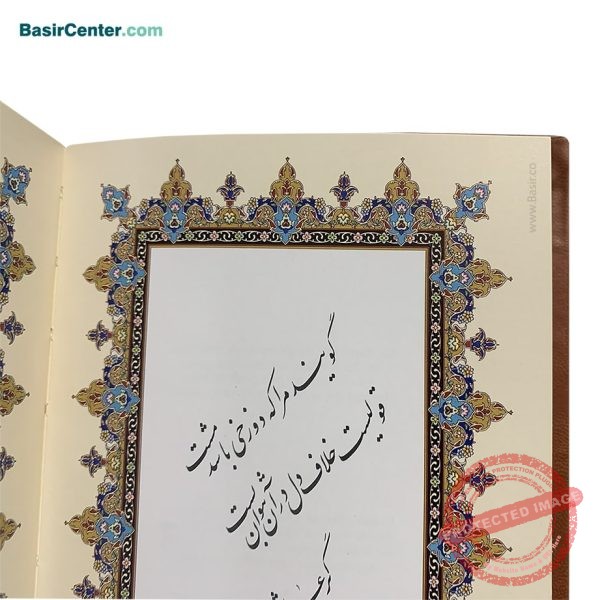 BasirCenter.com
www.Basir.co
گویند مرا که دوزخی باشد مست
قولیست خلاف دل در آن نتوان بست
گر
PROTECTED IMAGE